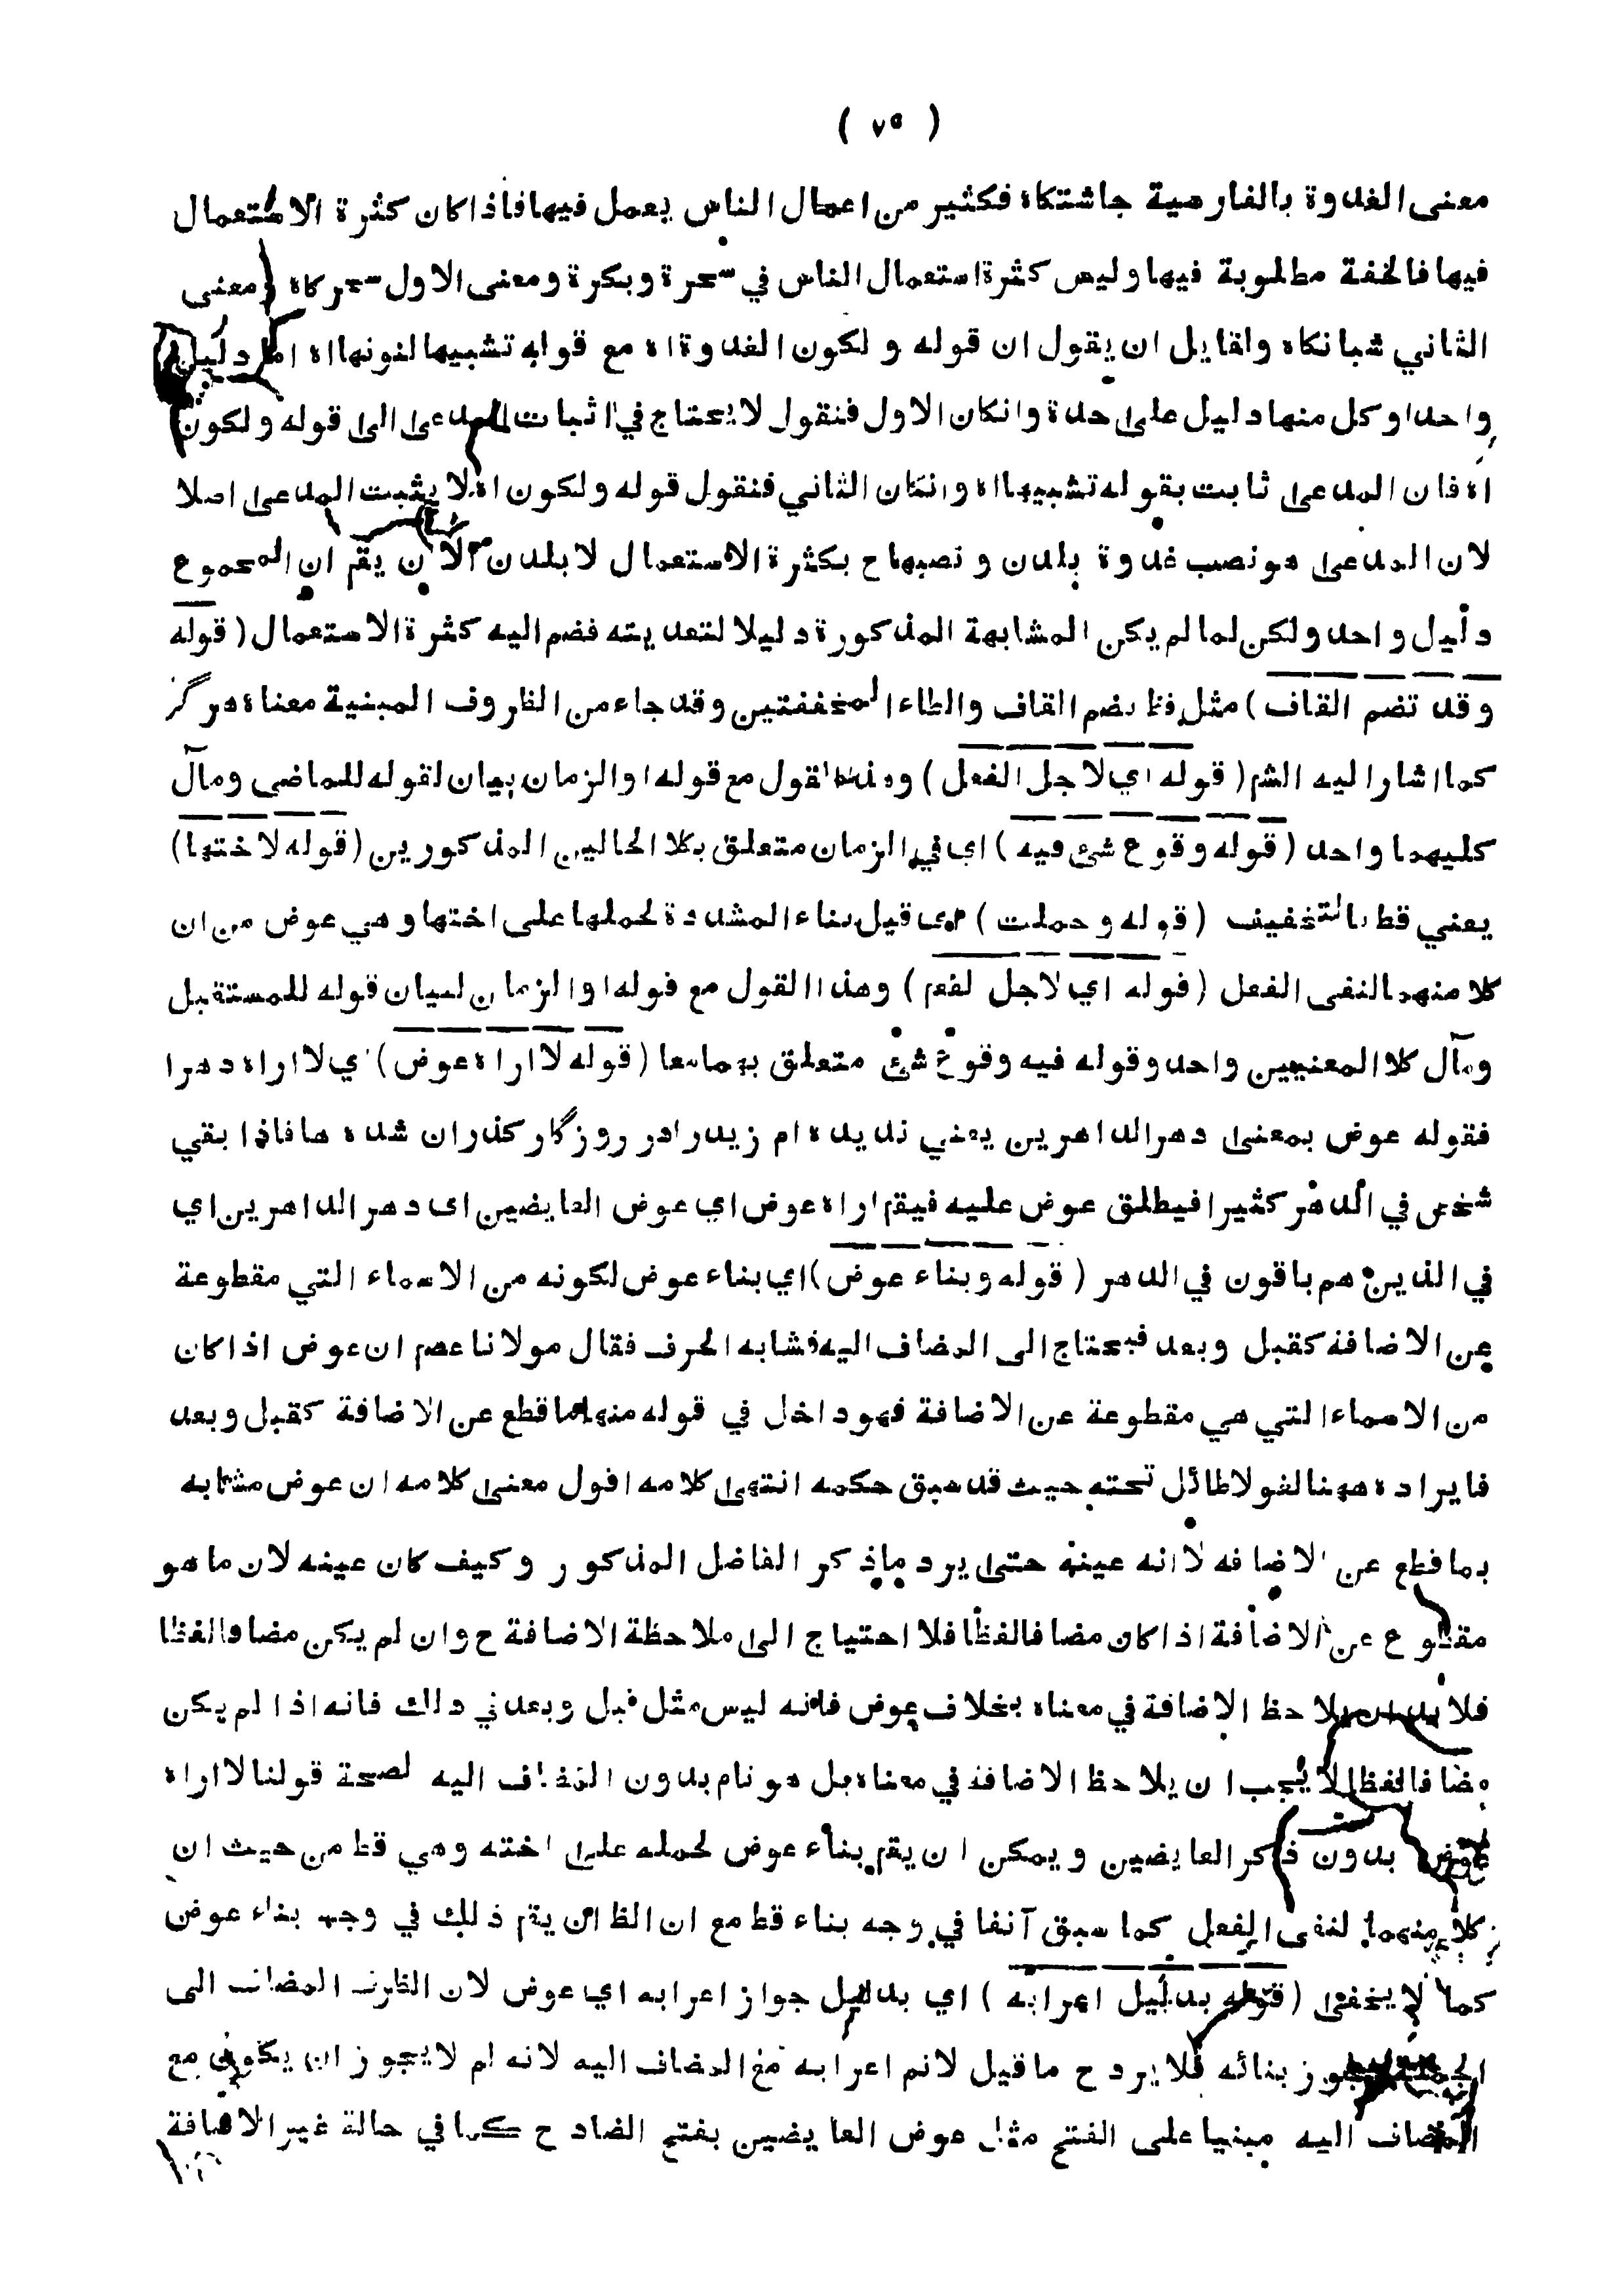 ( ٧٥ )
معنى الغدوة بالفارسية چاشتكاه فكثير من اعمال الناس يعمل فيها فاذا كان كثرة الاستعمال
فيها فالخفة مطلوبة فيها وليس كثرة استعمال الناس في سحرة وبكرة ومعنى الاول سحركاه ومعنى
الثاني شبانكاه ولقايل ان يقول ان قوله ولكون الغدوة اه مع قوله تشبيها لنونها اه اما دليل
واحد او كل منها دليل على حدة وانكان الاول فنقول لا يحتاج في اثبات المدعى الى قوله ولكون
اه فان المدعى ثابت بقوله تشبيها اه وانكان الثاني فنقول قوله ولكون اه لا يثبت المدعى اصلا
لان المدعى هو نصب غدوة بلدن ونصبها ح بكثرة الاستعمال لا بلدن الا ان يقم ان المجموع
دليل واحد ولكن لما لم يكن المشابهة المذكورة دليلا لتعديته فضم اليه كثرة الاستعمال ( قوله
وقد تضم القاف ) مثل قط بضم القاف والطاء المخففتين وقد جاء من الظروف المبنية معناه هرگز
كما اشار اليه الشم ( قوله اي لاجل الفعل ) وهذا القول مع قوله او الزمان بيان لقوله للماضي ومآل
كليهما واحد ( قوله وقوع شئ فيه ) اي في الزمان متعلق بكلا الحالين المذكورين ( قوله لاختها )
يعني قط بالتخفيف ( قوله وحملت ) اى قيل بناء المشددة لحملها على اختها وهي عوض من ان
كلا منهما لنفى الفعل ( قوله اي لاجل لفعم ) وهذا القول مع قوله او الزمان لبيان قوله للمستقبل
ومآل كلا المعنيين واحد وقوله فيه وقوع شئ متعلق بهما معا ( قوله لا اراه عوض ) اي لا اراه دهرا
فقوله عوض بمعنى دهر الداهرين يعني نديده ام زيد را در روزگار كذران شده ها فاذا بقي
شخص في الدهر كثيرا فيطلق عوض عليه فيقم اراه عوض اي عوض العايضين اى دهر الداهرين اي
في الذين هم باقون في الدهر ( قوله وبناء عوض ) اي بناء عوض لكونه من الاسماء التي مقطوعة
عن الاضافة كقبل وبعد فيحتاج الى المضاف اليه فشابه الحرف فقال مولانا عصم ان عوض اذا كان
من الاسماء التي هي مقطوعة عن الاضافة فهو داخل في قوله منها ما قطع عن الاضافة كقبل وبعد
فايراده ههنا لغو لا طائل تحته حيث قد سبق حكمه انتهى كلامه اقول معنى كلامه ان عوض مشابه
بما قطع عن الاضافه لا انه عينه حتى يرد ما ذكر الفاضل المذكور وكيف كان عينه لان ما هو
مقطوع عن الاضافة اذا كان مضافا لفظا فلا احتياج الى ملاحظة الاضافة ح وان لم يكن مضافا لفظا
فلا بد ان يلاحظ الاضافة في معناه بخلاف عوض فانه ليس مثل قبل وبعد في ذلك فانه اذا لم يكن
مضافا لفظا لا يجب ان يلاحظ الاضافة في معناه بل هو تام بدون المضاف اليه لصحة قولنا لا اراه
عوض بدون ذكر العايضين ويمكن ان يقم بناء عوض لحمله على اخته وهي قط من حيث ان
كلا منهما لنفى الفعل كما سبق آنفا في وجه بناء قط مع ان الظ ان يقم ذلك في وجه بناء عوض
كما لا يخفى ( قوله بدليل اعرابه ) اي بدليل جواز اعرابه اي عوض لان الظرف المضاف الى
الجملة يجوز بنائه فلا يرد ح ما قيل لانم اعرابه مع المضاف اليه لانه لم لا يجوز ان يكون مع
المضاف اليه مبنيا على الفتح مثل عوض العايضين بفتح الضاد ح كما في حالة غير الاضافة